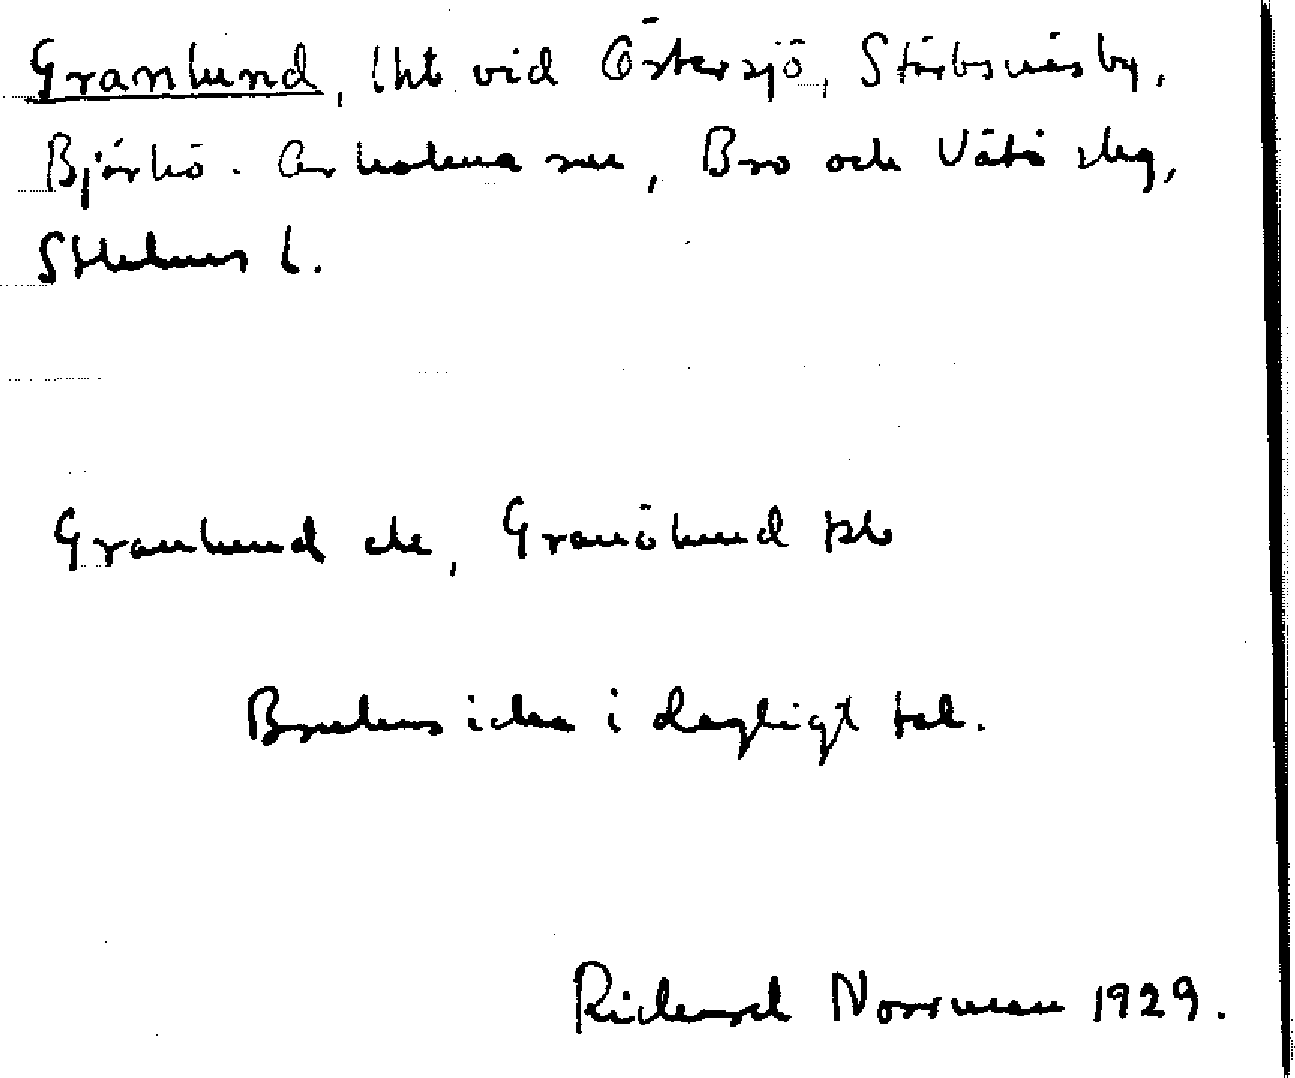 Granlund, lht vid Östersjö, Störbsnäsby,
Björkö-Arholma sn, Bro och Vätö slg,
Sthlms l.
Granlund eke, Granölund
i dagligt tal.
Rickard Norrman 1929.